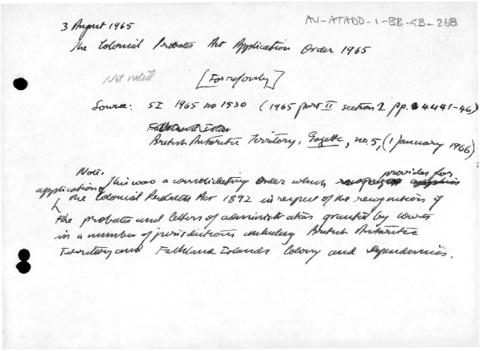 3 August 1965
AU-ATADD-1-BB-GB-268
The Colonial Probates Act Application Order 1965
Not noted
[For ref only]
Source: SI 1965 no 1530 (1965 part II section 2 pp. 4441-46)
Falkland Islan
British Antarctic Territory, Gazette, no. 5, (1 January 1966)
Note. provides for
application of This was a consolidating order which
the Colonial Probates Act 1892 in respect of the recognition of
the probates and letters of administration granted by courts
in a number of jurisdictions including British Antarctic
Territory and Falkland Islands Colony and Dependencies.